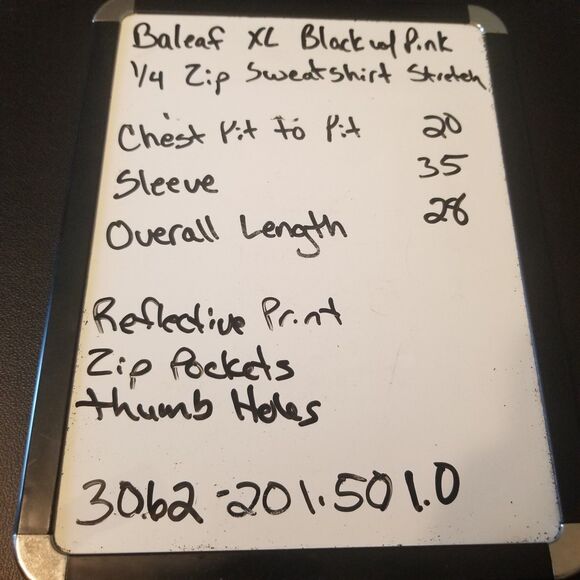 Baleaf XL Black w/ Pink
1/4 Zip Sweatshirt Stretch
Chest Pit to Pit 20
Sleeve 35
Overall Length 28
Reflective Print
Zip Pockets
thumb Holes
30.62-201.50 1.0